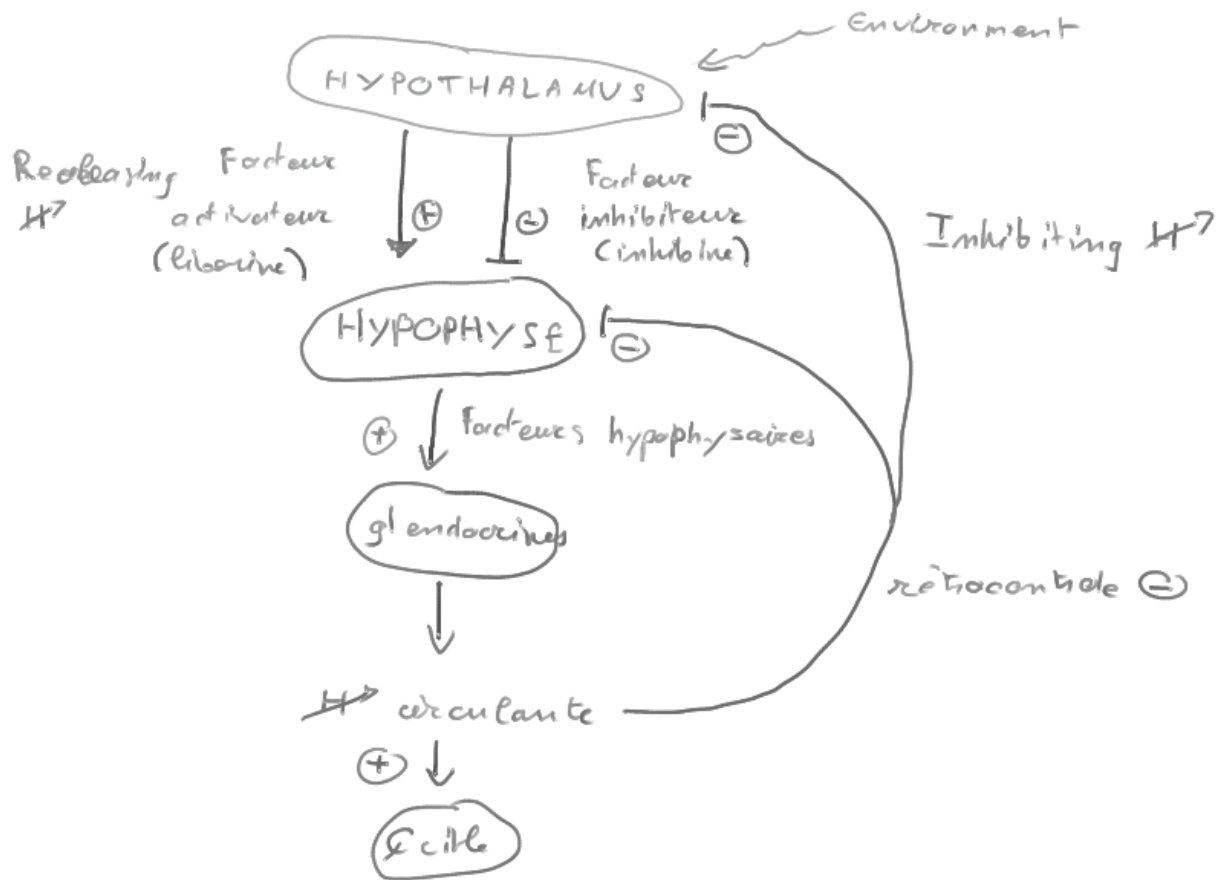 Environment
HYPOTHALAMUS
⊖
Realeasing
H
Facteur
activateur
(liborine)
⊕
⊖
Facteur
inhibiteur
(inhibine)
Inhibiting H
HYPOPHYSE
⊖
⊕
Facteurs hypophysaires
gl endocrines
rétrocontrole ⊖
H circulante
⊕
cible